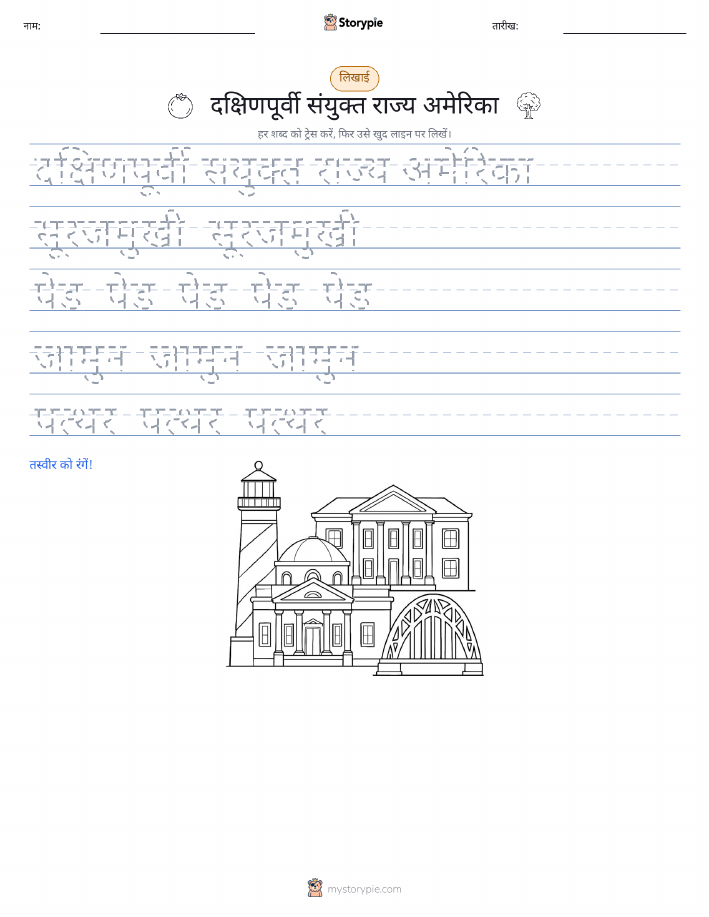 नाम:
Storypie
तारीख:
लिखाई
दक्षिणपूर्वी संयुक्त राज्य अमेरिका
हर शब्द को ट्रेस करें, फिर उसे खुद लाइन पर लिखें।
दक्षिणपूर्वी संयुक्त राज्य अमेरिका
सूरजमुखी सूरजमुखी
पेड़ पेड़ पेड़ पेड़ पेड़
जामुन जामुन जामुन
पत्थर पत्थर पत्थर
तस्वीर को रंगें!
mystorypie.com